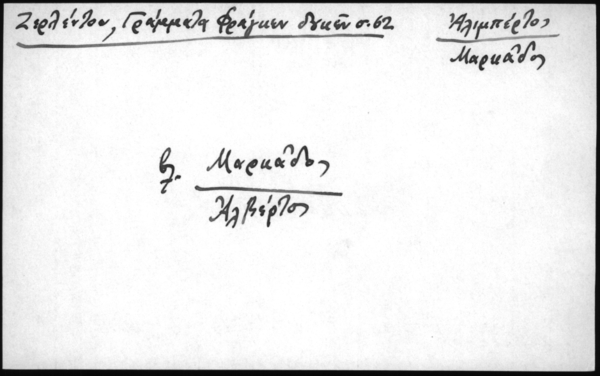 Ζερλέντου, Γράμματα Φράγκων δουκῶν σ. 62
Ἀλιμπέρτος
Μαρκᾶδος
βλ. Μαρκᾶδος
Ἀλβέρτος